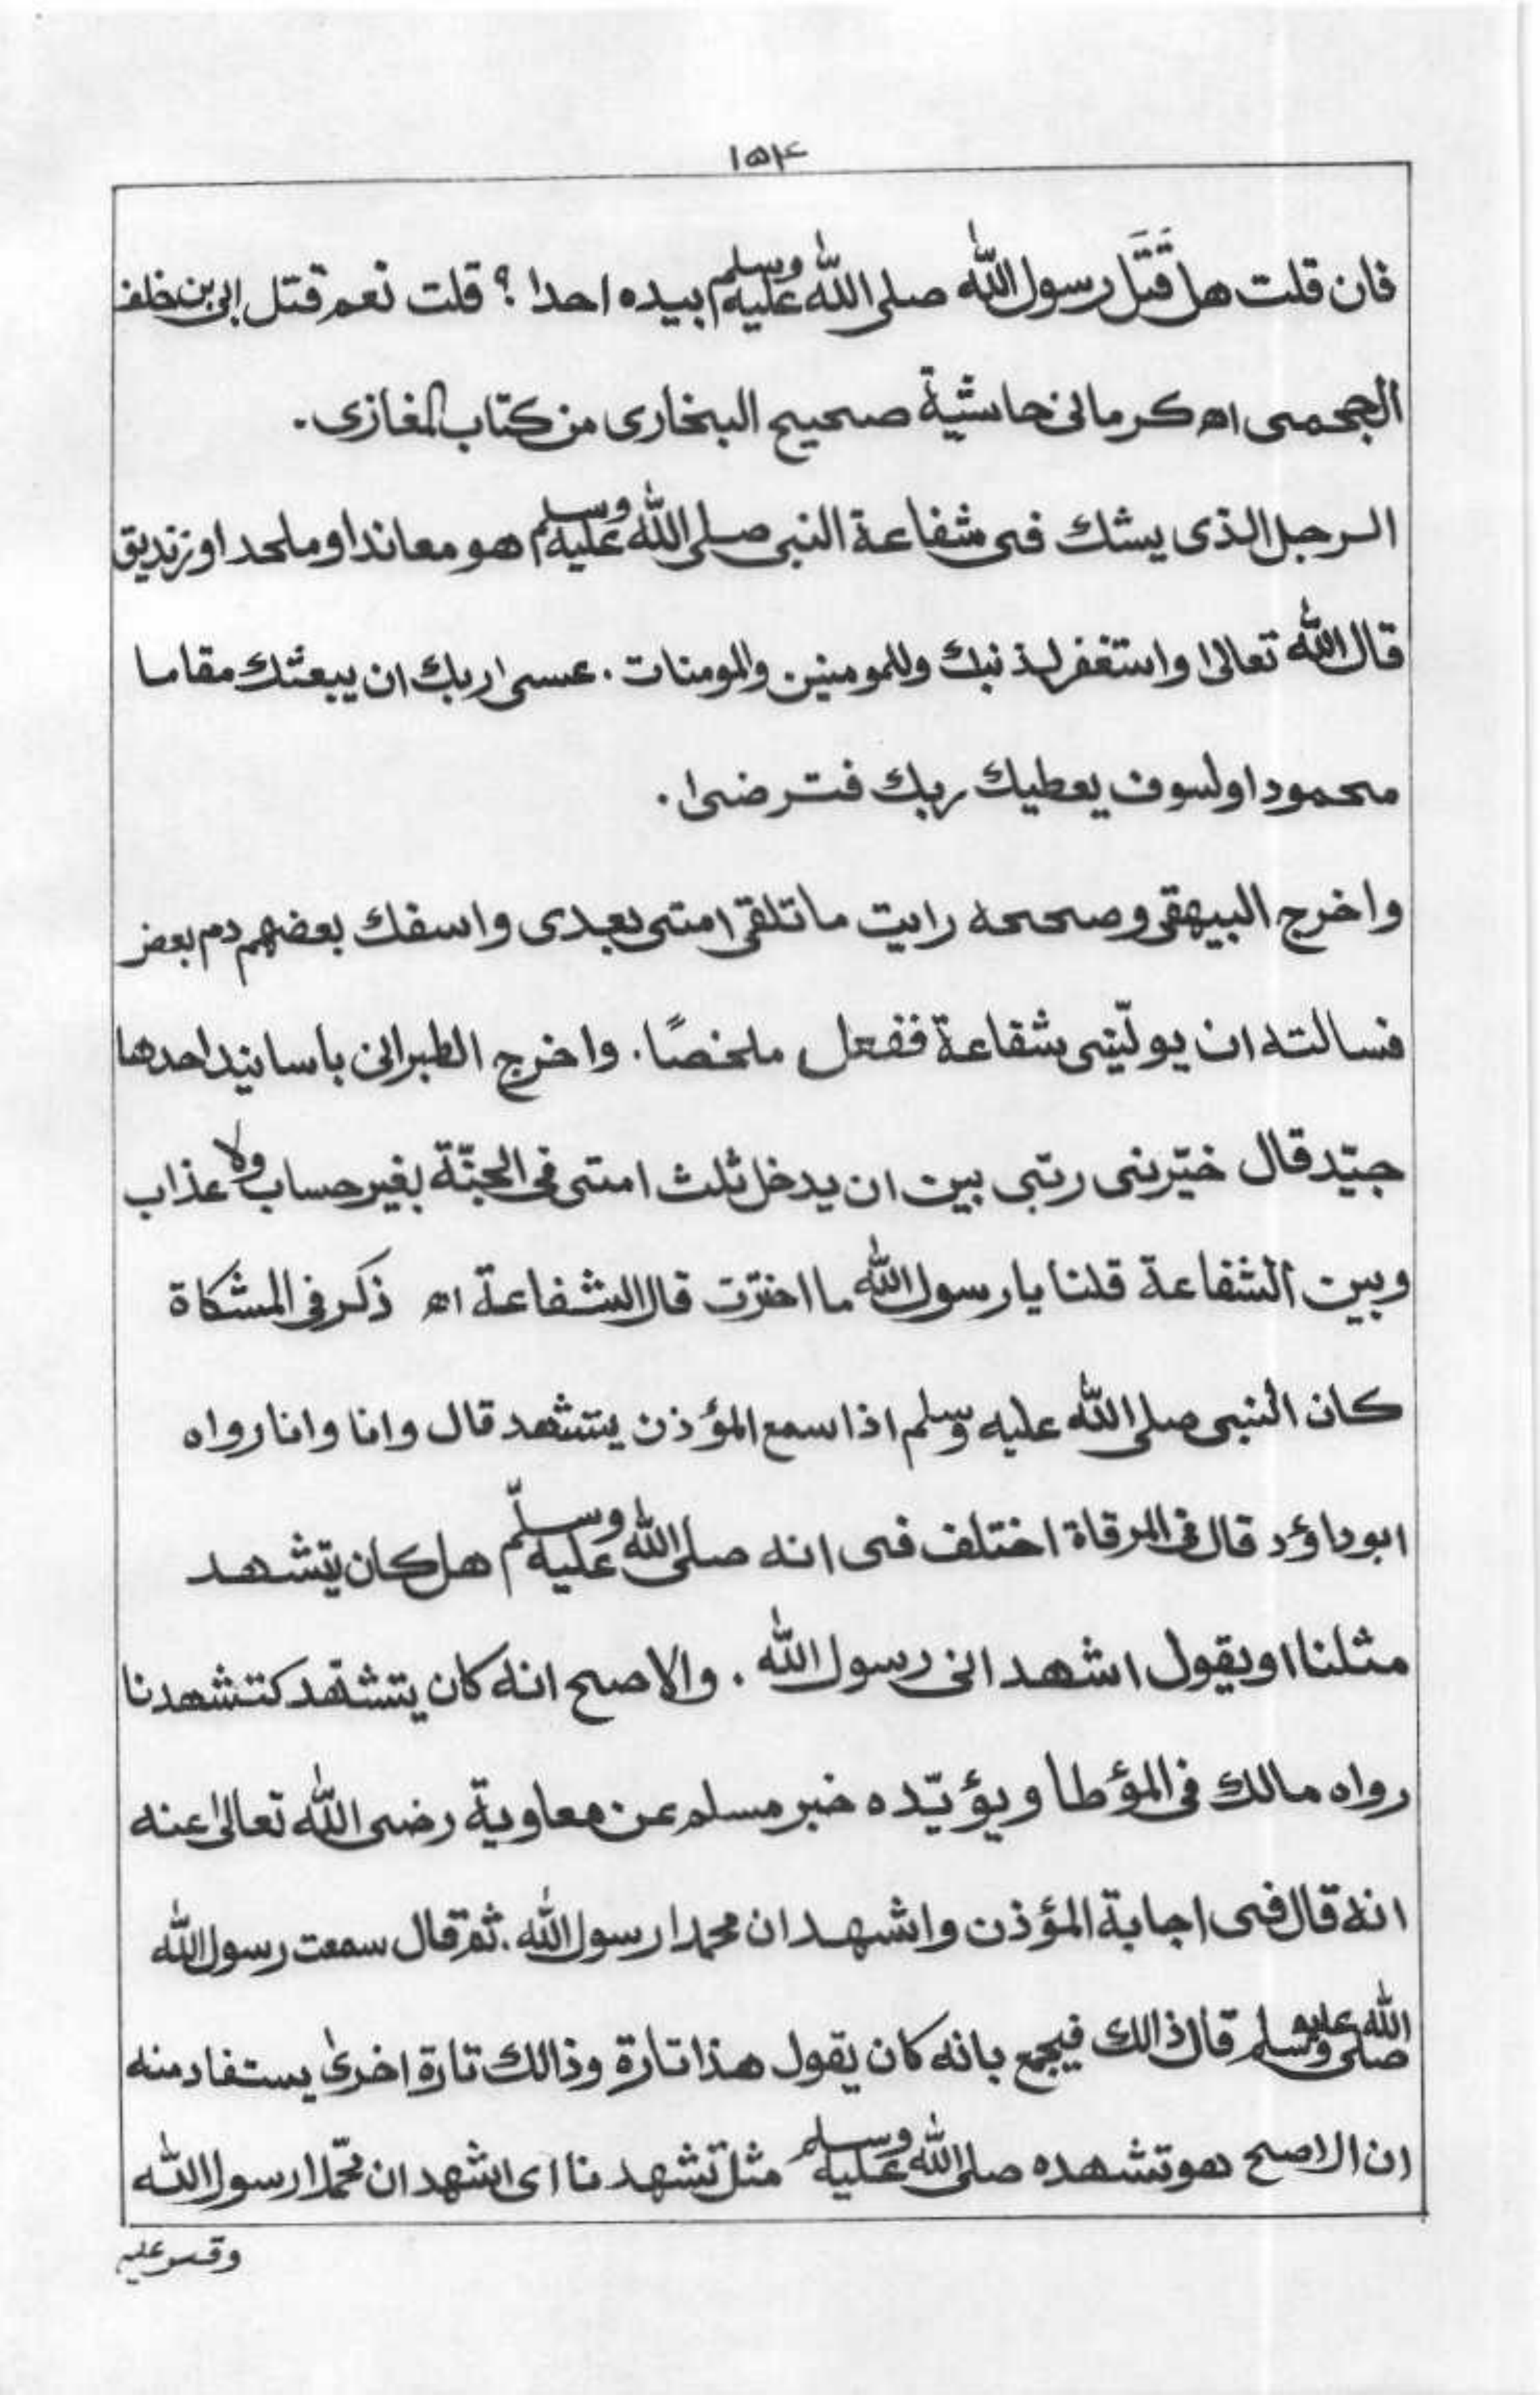 ۱۵۴
فان قلت هل قَتَل رسول الله صلى الله عليه وسلم بيده احدا ؟ قلت نعم قتل ابى بن خلف
الجحمى اھ كرمانى حاشية صحيح البخارى من كتاب المغازى .
الرجل الذى يشك فى شفاعة النبى صلى الله عليه وسلم هو معاندا وملحد اوزنديق
قال الله تعالىٰ واستغفر لذنبك وللمومنين والمومنات . عسىٰ ربك ان يبعثك مقاما
محمودا ولسوف يعطيك ربك فترضىٰ .
واخرج البيهقى وصححه رايت ماتلقى امتى بعدى واسفك بعضهم دم بعض
فسالته ان يولّينى شفاعة ففعل ملخصًا . واخرج الطبرانى باسانيد احدها
جيّد قال خيّرنى ربّى بين ان يدخل ثلث امتى فى الجنّة بغير حساب ولا عذاب
وبين الشفاعة قلنا يا رسول الله ما اخترت قال الشفاعة اھ ذكر فى المشكاة
كان النبى صلى الله عليه وسلم اذا سمع المؤذن يتشهد قال وانا وانا رواه
ابوداؤد قال فى المرقاة اختلف فى انه صلى الله عليه وسلّم هل كان يتشهد
مثلنا او يقول اشهد انى رسول الله . والاصح انه كان يتشهّد كتشهدنا
رواه مالك فى المؤطا ويؤيّده خبر مسلم عن معاوية رضى الله تعالىٰ عنه
انه قال فى اجابة المؤذن واشهد ان محمدا رسول الله . ثم قال سمعت رسول الله
صلى الله عليه وسلم قال ذالك فيجمع بانه كان يقول هذا تارة وذالك تارة اخرىٰ يستفاد منه
ان الاصح هو تشهده صلى الله عليه وسلم مثل تشهدنا اى اشهد ان محمّدا رسول الله
وقس عليه